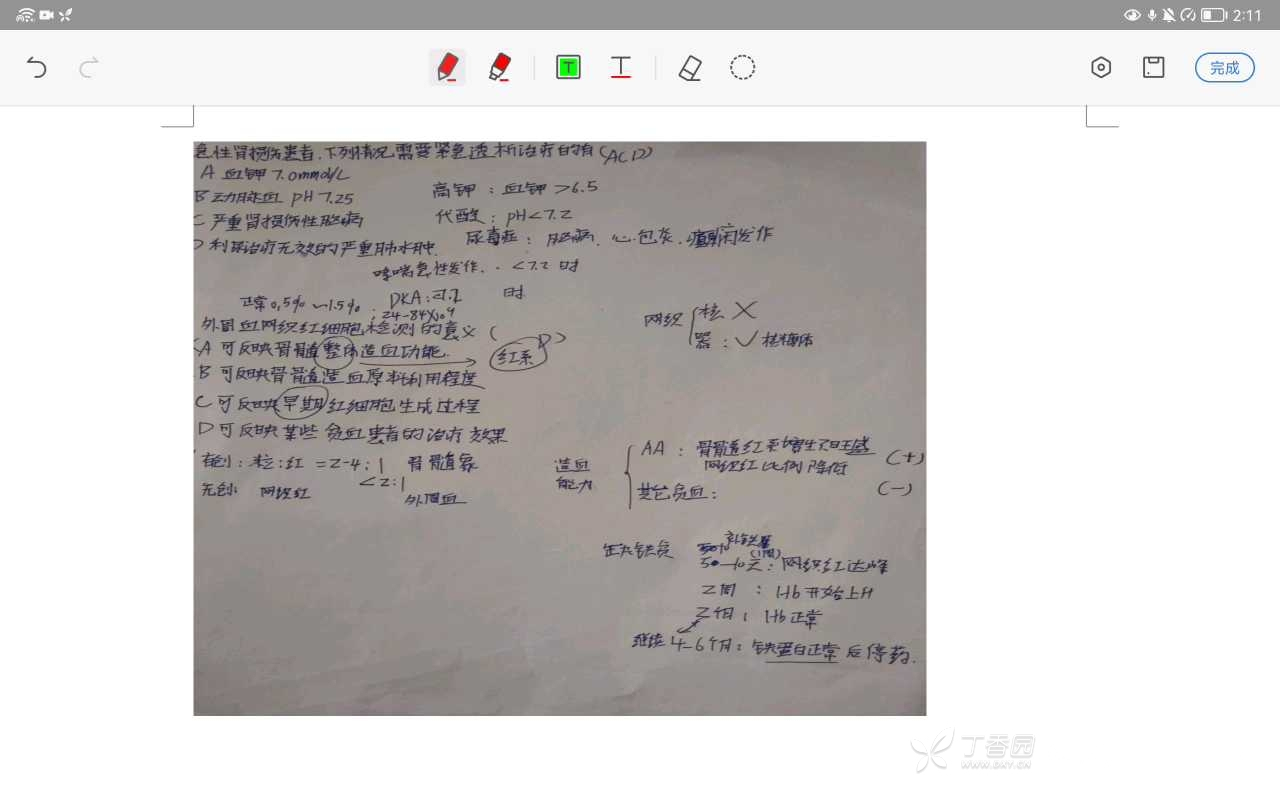 2:11
完成
急性肾损伤患者，下列情况需要紧急透析治疗的有(ACD)
A 血钾 7.0mmol/L
B 动脉血 pH 7.25
C 严重肾损伤性脑病
D 利尿治疗无效的严重肺水肿.
高钾：血钾 >6.5
代酸：pH<7.2
尿毒症：脑病、心包炎、癫痫发作
哮喘急性发作. <7.2 时
DKA: 时
正常 0.5% ~1.5% ; 24-84×10^9
外周血网织红细胞检测的意义 ( D )
A 可反映骨髓整体造血功能. 红系
B 可反映骨髓造血原料利用程度
C 可反映早期红细胞生成过程
D 可反映某些贫血患者的治疗效果
网织 核 ×
器：√ 核糖体
有创：粒:红 =2-4:1 骨髓象
<2:1
无创: 网织红 外周血
造血能力
AA：骨髓红系增生 (+)
网织红比例降低
其它贫血： (-)
缺铁贫 补铁
5-10天：网织红达峰 (1周)
2周：Hb开始上升
2月：Hb正常
继续 4-6个月：铁蛋白正常后停药.
丁香园
WWW.DXY.CN